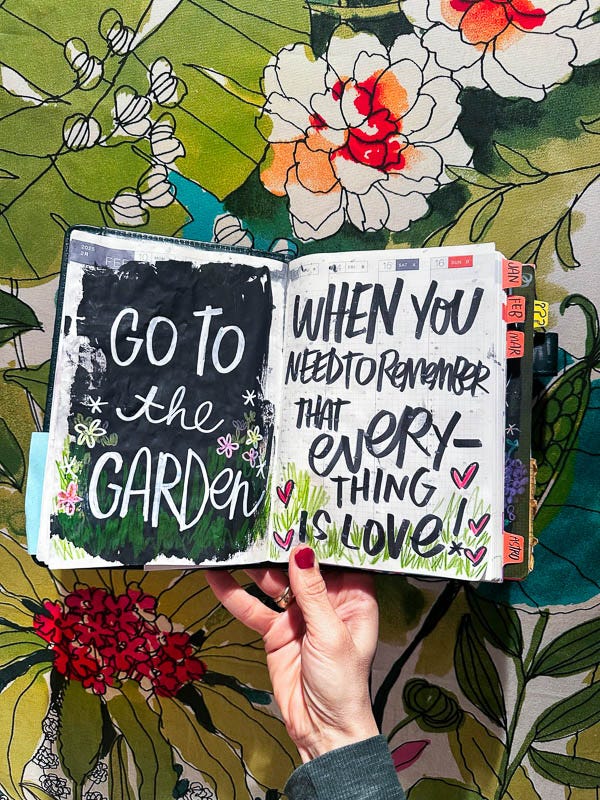 2025
FEB
GO TO
the
GARDen
16 SAT
16 SUN
WHEN YOU
NEED TO RemeMBER
THAT
eVeRY-
THING
IS LOVe!
JAN
FEB
MAR
ASTRO